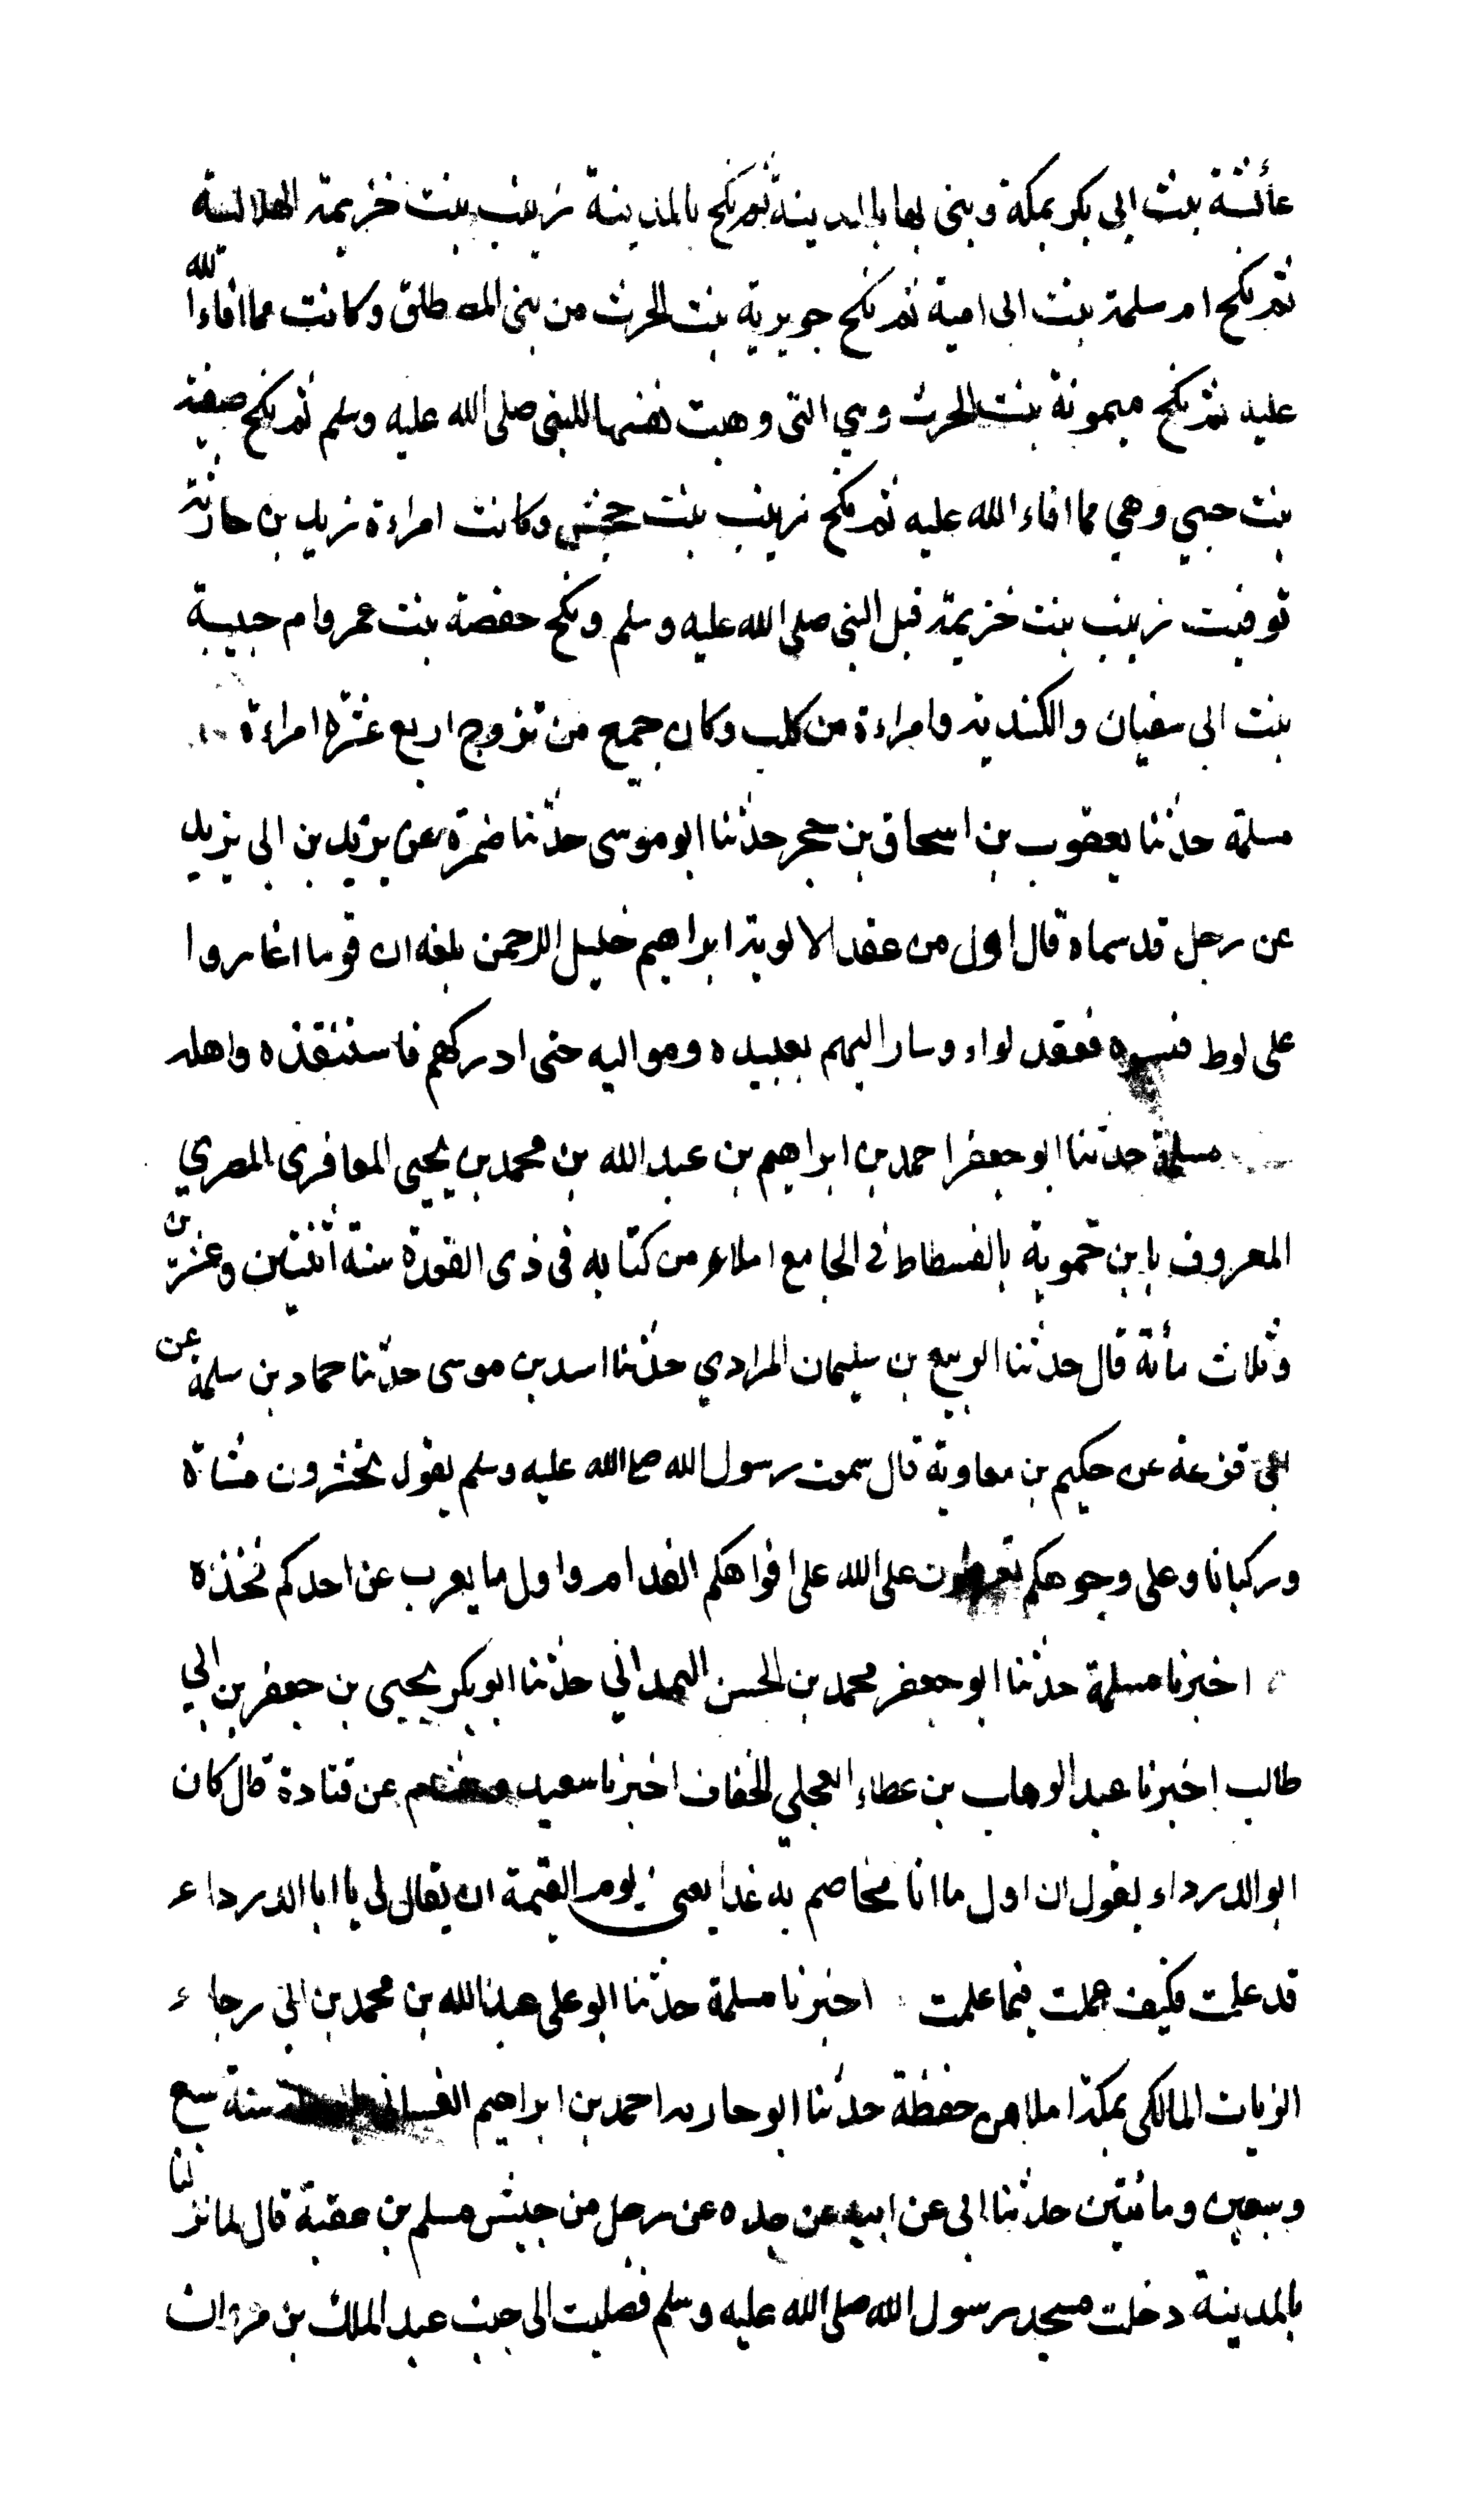 عائشة بنت ابى بكر بمكة وبنى بها بالمدينة ثم نكح بالمدينة زينب بنت خزيمة الهلالية
ثم نكح ام سلمة بنت ابى امية ثم نكح جويرية بنت الحرث من بنى المصطلق وكانت مما افاء الله
عليه ثم نكح ميمونة بنت الحرث وهي التى وهبت نفسها للنبى صلى الله عليه وسلم ثم نكح صفية
بنت حيي وهي مما افاء الله عليه ثم نكح زينب بنت جحش وكانت امراءة زيد بن حارثة
توفيت زينب بنت خزيمة قبل النبى صلى الله عليه وسلم ونكح حفصة بنت عمر وام حبيبة
بنت ابى سفيان والكندية وامراءة من كلب وكان جميع من تزوج اربع عشرة امراءة
مسلمة حدثنا يعقوب بن اسحاق بن حجر حدثنا ابو موسى حدثنا ضمرة عن يزيد بن ابى يزيد
عن رجل قد سماه قال اول من عقد الالوية ابراهيم خليل الرحمن بلغه ان قوما اغاروا
على لوط فسبوه فعقد لواء وسار اليهم بعبيده ومواليه حتى ادركهم فاستنقذه واهله
مسلمة حدثنا ابو جعفر احمد بن ابراهيم بن عبد الله بن محمد بن يحيى المعافرى المصري
المعروف بابن حموية بالفسطاط فى الجامع املاء من كتابه فى ذى القعدة سنة اثنتين وعشرين
وثلاث مأئة قال حدثنا الربيع بن سليمان المرادي حدثنا اسد بن موسى حدثنا حماد بن سلمة عن
ابى قزعة عن حكيم بن معاوية قال سمعت رسول الله صلى الله عليه وسلم يقول تحشرون مشاة
وركبانا وعلى وجوهكم تعرضون على الله على افواهكم الفدام واول ما يعرب عن احدكم فخذه
اخبرنا مسلمة حدثنا ابو جعفر محمد بن الحسن الهمداني حدثنا ابو بكر يحيى بن جعفر بن ابي
طالب اخبرنا عبد الوهاب بن عطاء العجلي الخفاف اخبرنا سعيد عن قتادة قال كان
ابو الدرداء يقول ان اول ما انا مخاصم به غدا يعنى يوم القيمة ان يقال لى يا ابا الدرداء
قد علمت فكيف عملت فيما علمت اخبرنا مسلمة حدثنا ابو على عبد الله بن محمد بن ابى رجاء
الزيات المالكى بمكة املا من حفظة حدثنا ابو حارثه احمد بن ابراهيم الغسانى سنة سبع
وسبعين ومائتين حدثنا ابى عن ابيه عن جده عن رجل من جيش مسلم بن عقبة قال لما نزلنا
بالمدينة دخلت مسجد رسول الله صلى الله عليه وسلم فصليت الى جنب عبد الملك بن مروان